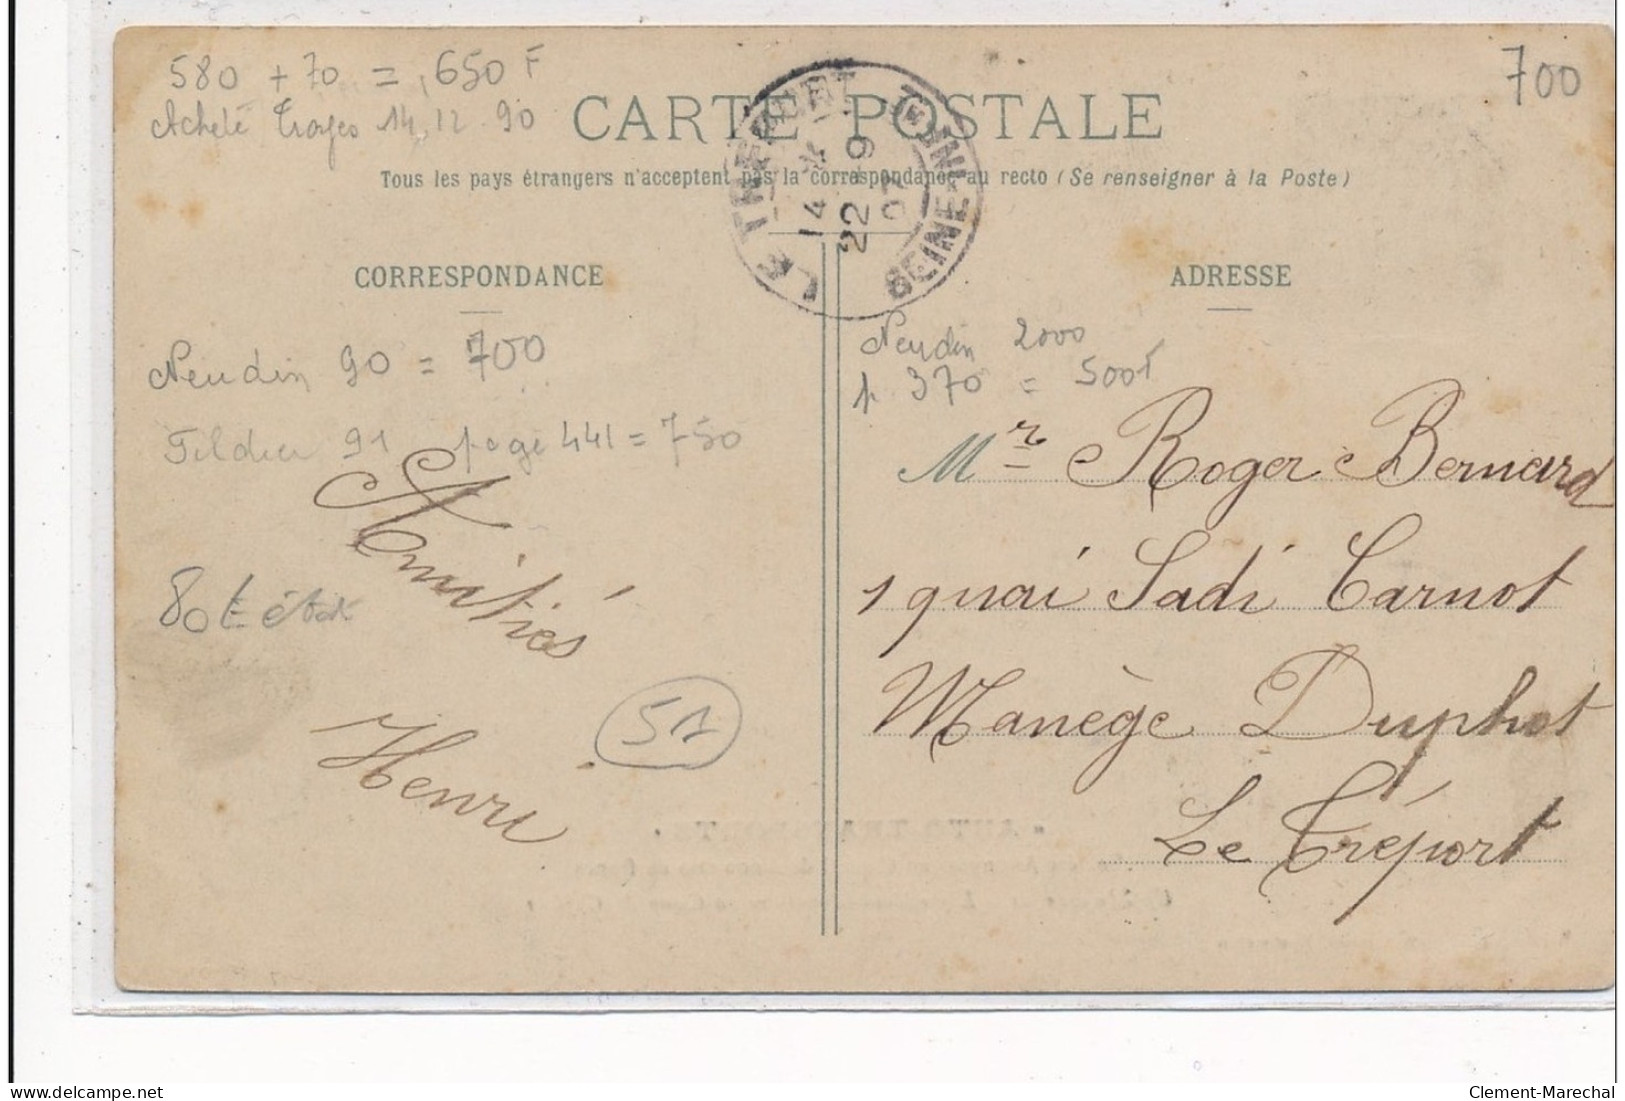 580 + 70 = 650 F
Acheté Troyes 14.12.90
700
CARTE POSTALE
Tous les pays étrangers n'acceptent pas la correspondance au recto (Se renseigner à la Poste)
LE TREPORT
14
22 - 9
07
SEINE-INF
CORRESPONDANCE
ADRESSE
Neudin 90 = 700
Fildier 91 page 441 = 750
Neudin 2000
p 370 = 500F
Amitiés
Henri
51
Mr Roger Bernard
1 quai Sadi Carnot
Manège Duphot
Le Tréport
delcampe.net
Clement-Marechal